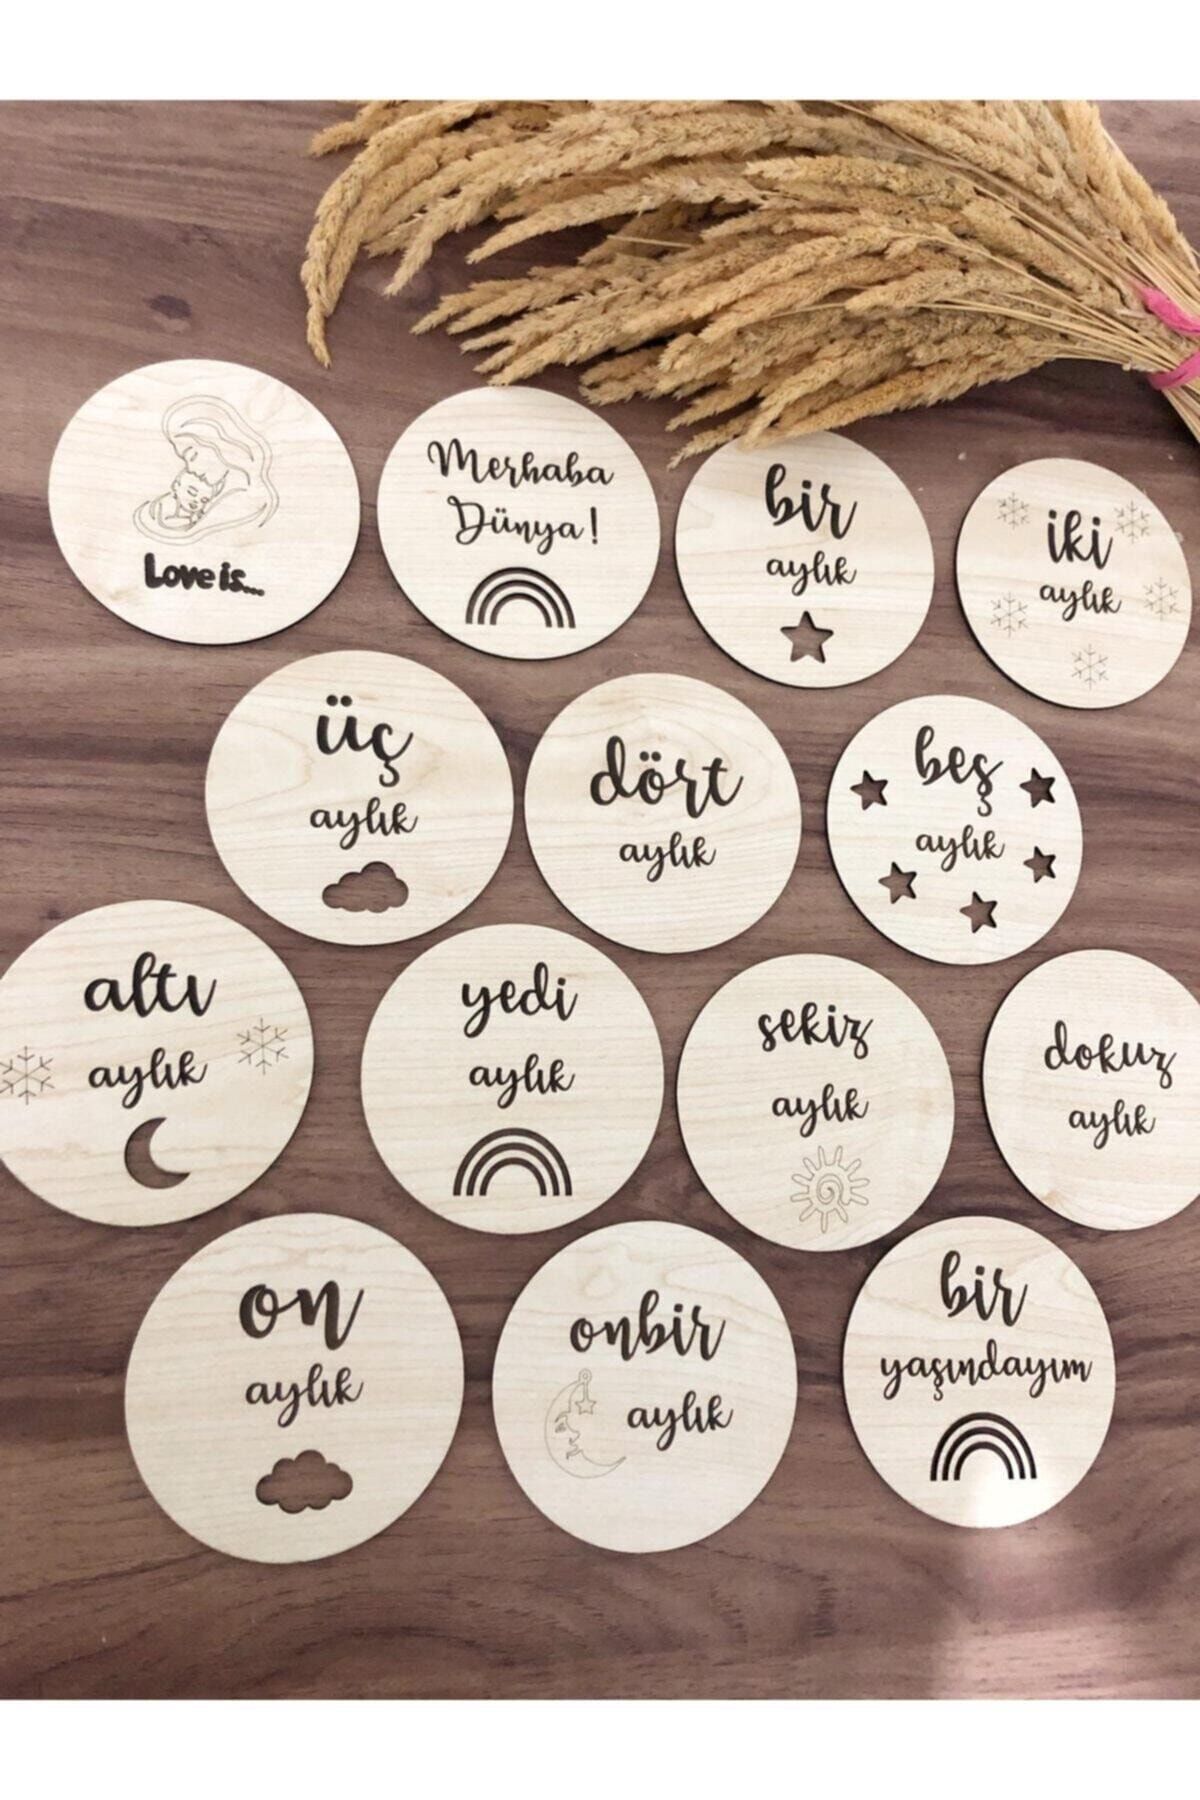 Love is...
Merhaba
Dünya!
bir
aylık
iki
aylık
üç
aylık
dört
aylık
beş
aylık
altı
aylık
yedi
aylık
sekiz
aylık
dokuz
aylık
on
aylık
onbir
aylık
bir
yaşındayım